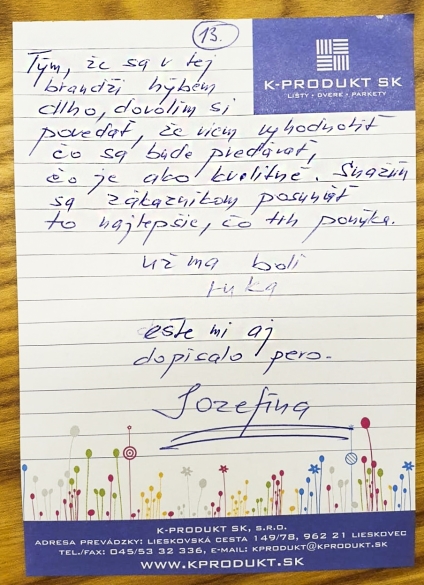 13.
K-PRODUKT SK
LIŠTY • DVERE • PARKETY
Tým, že sa v tej
brandži hýbem
dlho, dovolím si
povedať, že viem vyhodnotiť
čo sa bude predávať,
čo je ako kvalitné. Snažím
sa zákazníkom posunúť
to najlepšie, čo trh ponúka.
už ma bolí
ruka
ešte mi aj
dopísalo pero.
Jozefína
K-PRODUKT SK, S.R.O.
ADRESA PREVÁDZKY: LIESKOVSKÁ CESTA 149/78, 962 21 LIESKOVEC
TEL./FAX: 045/53 32 336, E-MAIL: KPRODUKT@KPRODUKT.SK
WWW.KPRODUKT.SK